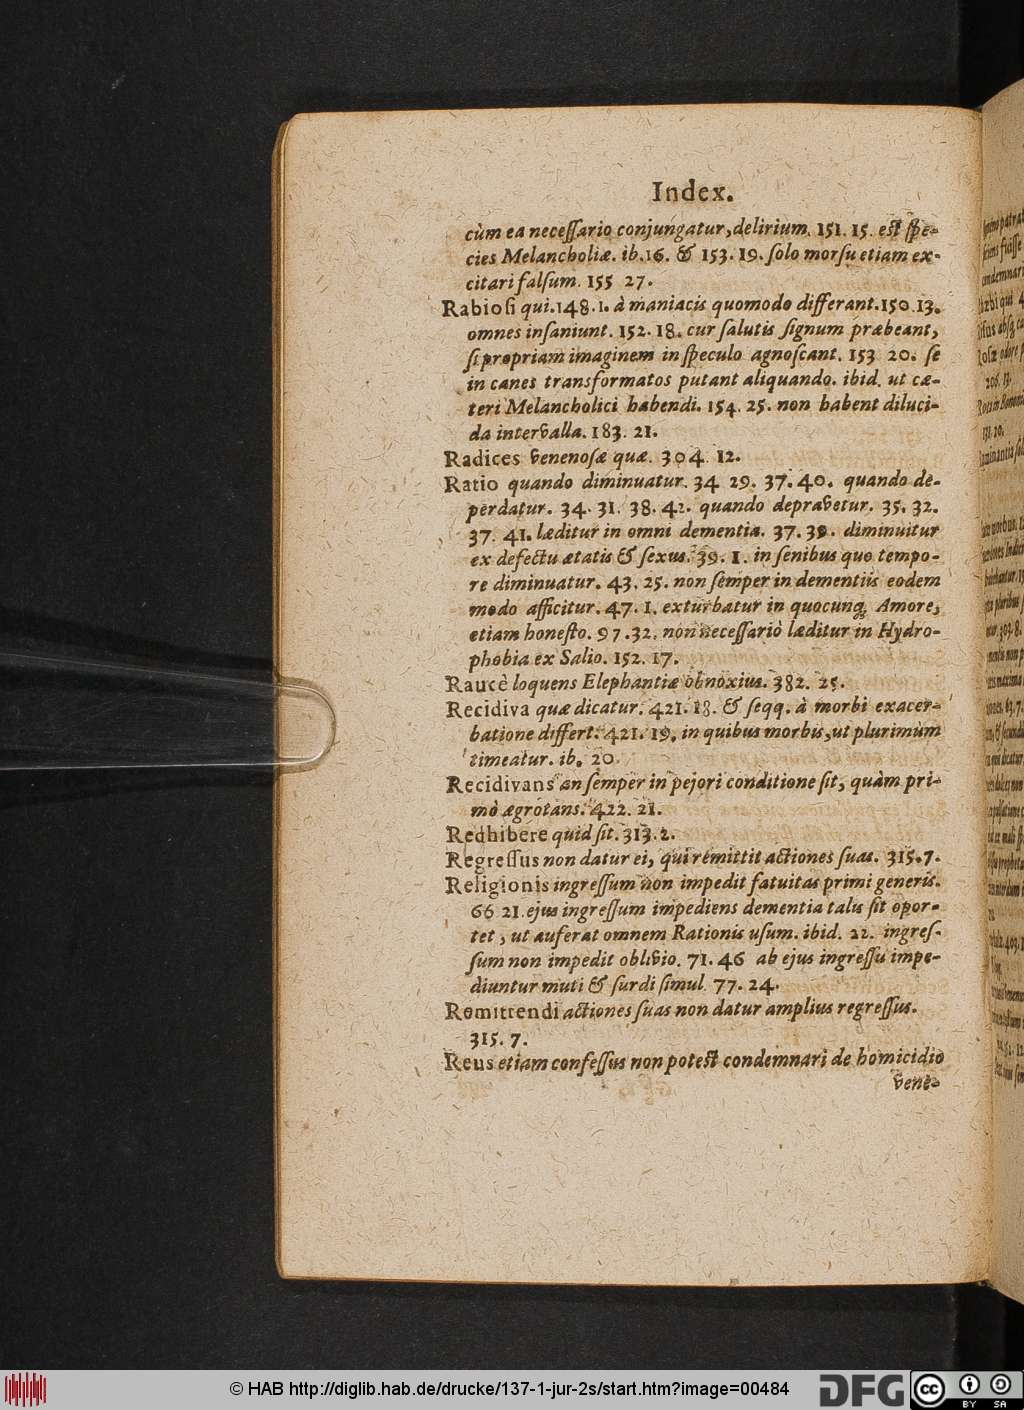 Index.
cùm ea neceſſario conjungatur, delirium. 151. 15. est ſpe-
cies Melancholiæ. ib. 16. & 153. 19. ſolo morſu etiam ex-
citari falſum. 155 27.
Rabioſi qui. 148. 1. à maniacis quomodo differant. 150. 13.
omnes inſaniunt. 152. 18. cur ſalutis ſignum præbeant,
ſi propriam imaginem in ſpeculo agnoſcant. 153 20. ſe
in canes transformatos putant aliquando. ibid. ut cæ-
teri Melancholici habendi. 154. 25. non habent diluci-
da intervalla. 183. 21.
Radices venenoſæ quæ. 304. 12.
Ratio quando diminuatur. 34 29. 37. 40. quando de-
perdatur. 34. 31. 38. 42. quando depravetur. 35. 32.
37. 41. læditur in omni dementia. 37. 39. diminuitur
ex defectu ætatis & ſexus. 39. 1. in ſenibus quo tempo-
re diminuatur. 43. 25. non ſemper in dementiis eodem
modo afficitur. 47. 1. exturbatur in quocunq; Amore,
etiam honeſto. 97. 32. non neceſſariò læditur in Hydro-
phobia ex Salio. 152. 17.
Raucè loquens Elephantiæ obnoxius. 382. 25.
Recidiva quæ dicatur. 421. 18. & ſeqq. à morbi exacer-
batione differt. 421. 19. in quibus morbis, ut plurimùm
timeatur. ib. 20
Recidivans an ſemper in pejori conditione ſit, quàm pri-
mò ægrotans. 422. 21.
Redhibere quid ſit. 313. 2.
Regreſſus non datur ei, qui remittit actiones ſuas. 315. 7.
Religionis ingreſſum non impedit fatuitas primi generis.
66 21. ejus ingreſſum impediens dementia talis ſit opor-
tet, ut auferat omnem Rationis uſum. ibid. 22. ingreſ-
ſum non impedit oblivio. 71. 46 ab ejus ingreſſu impe-
diuntur muti & ſurdi ſimul 77. 24.
Romittendi actiones ſuas non datur amplius regreſſus.
315. 7.
Reus etiam confeſſus non potest condemnari de homicidio
vene-
© HAB http://diglib.hab.de/drucke/137-1-jur-2s/start.htm?image=00484
DFG
cc BY SA